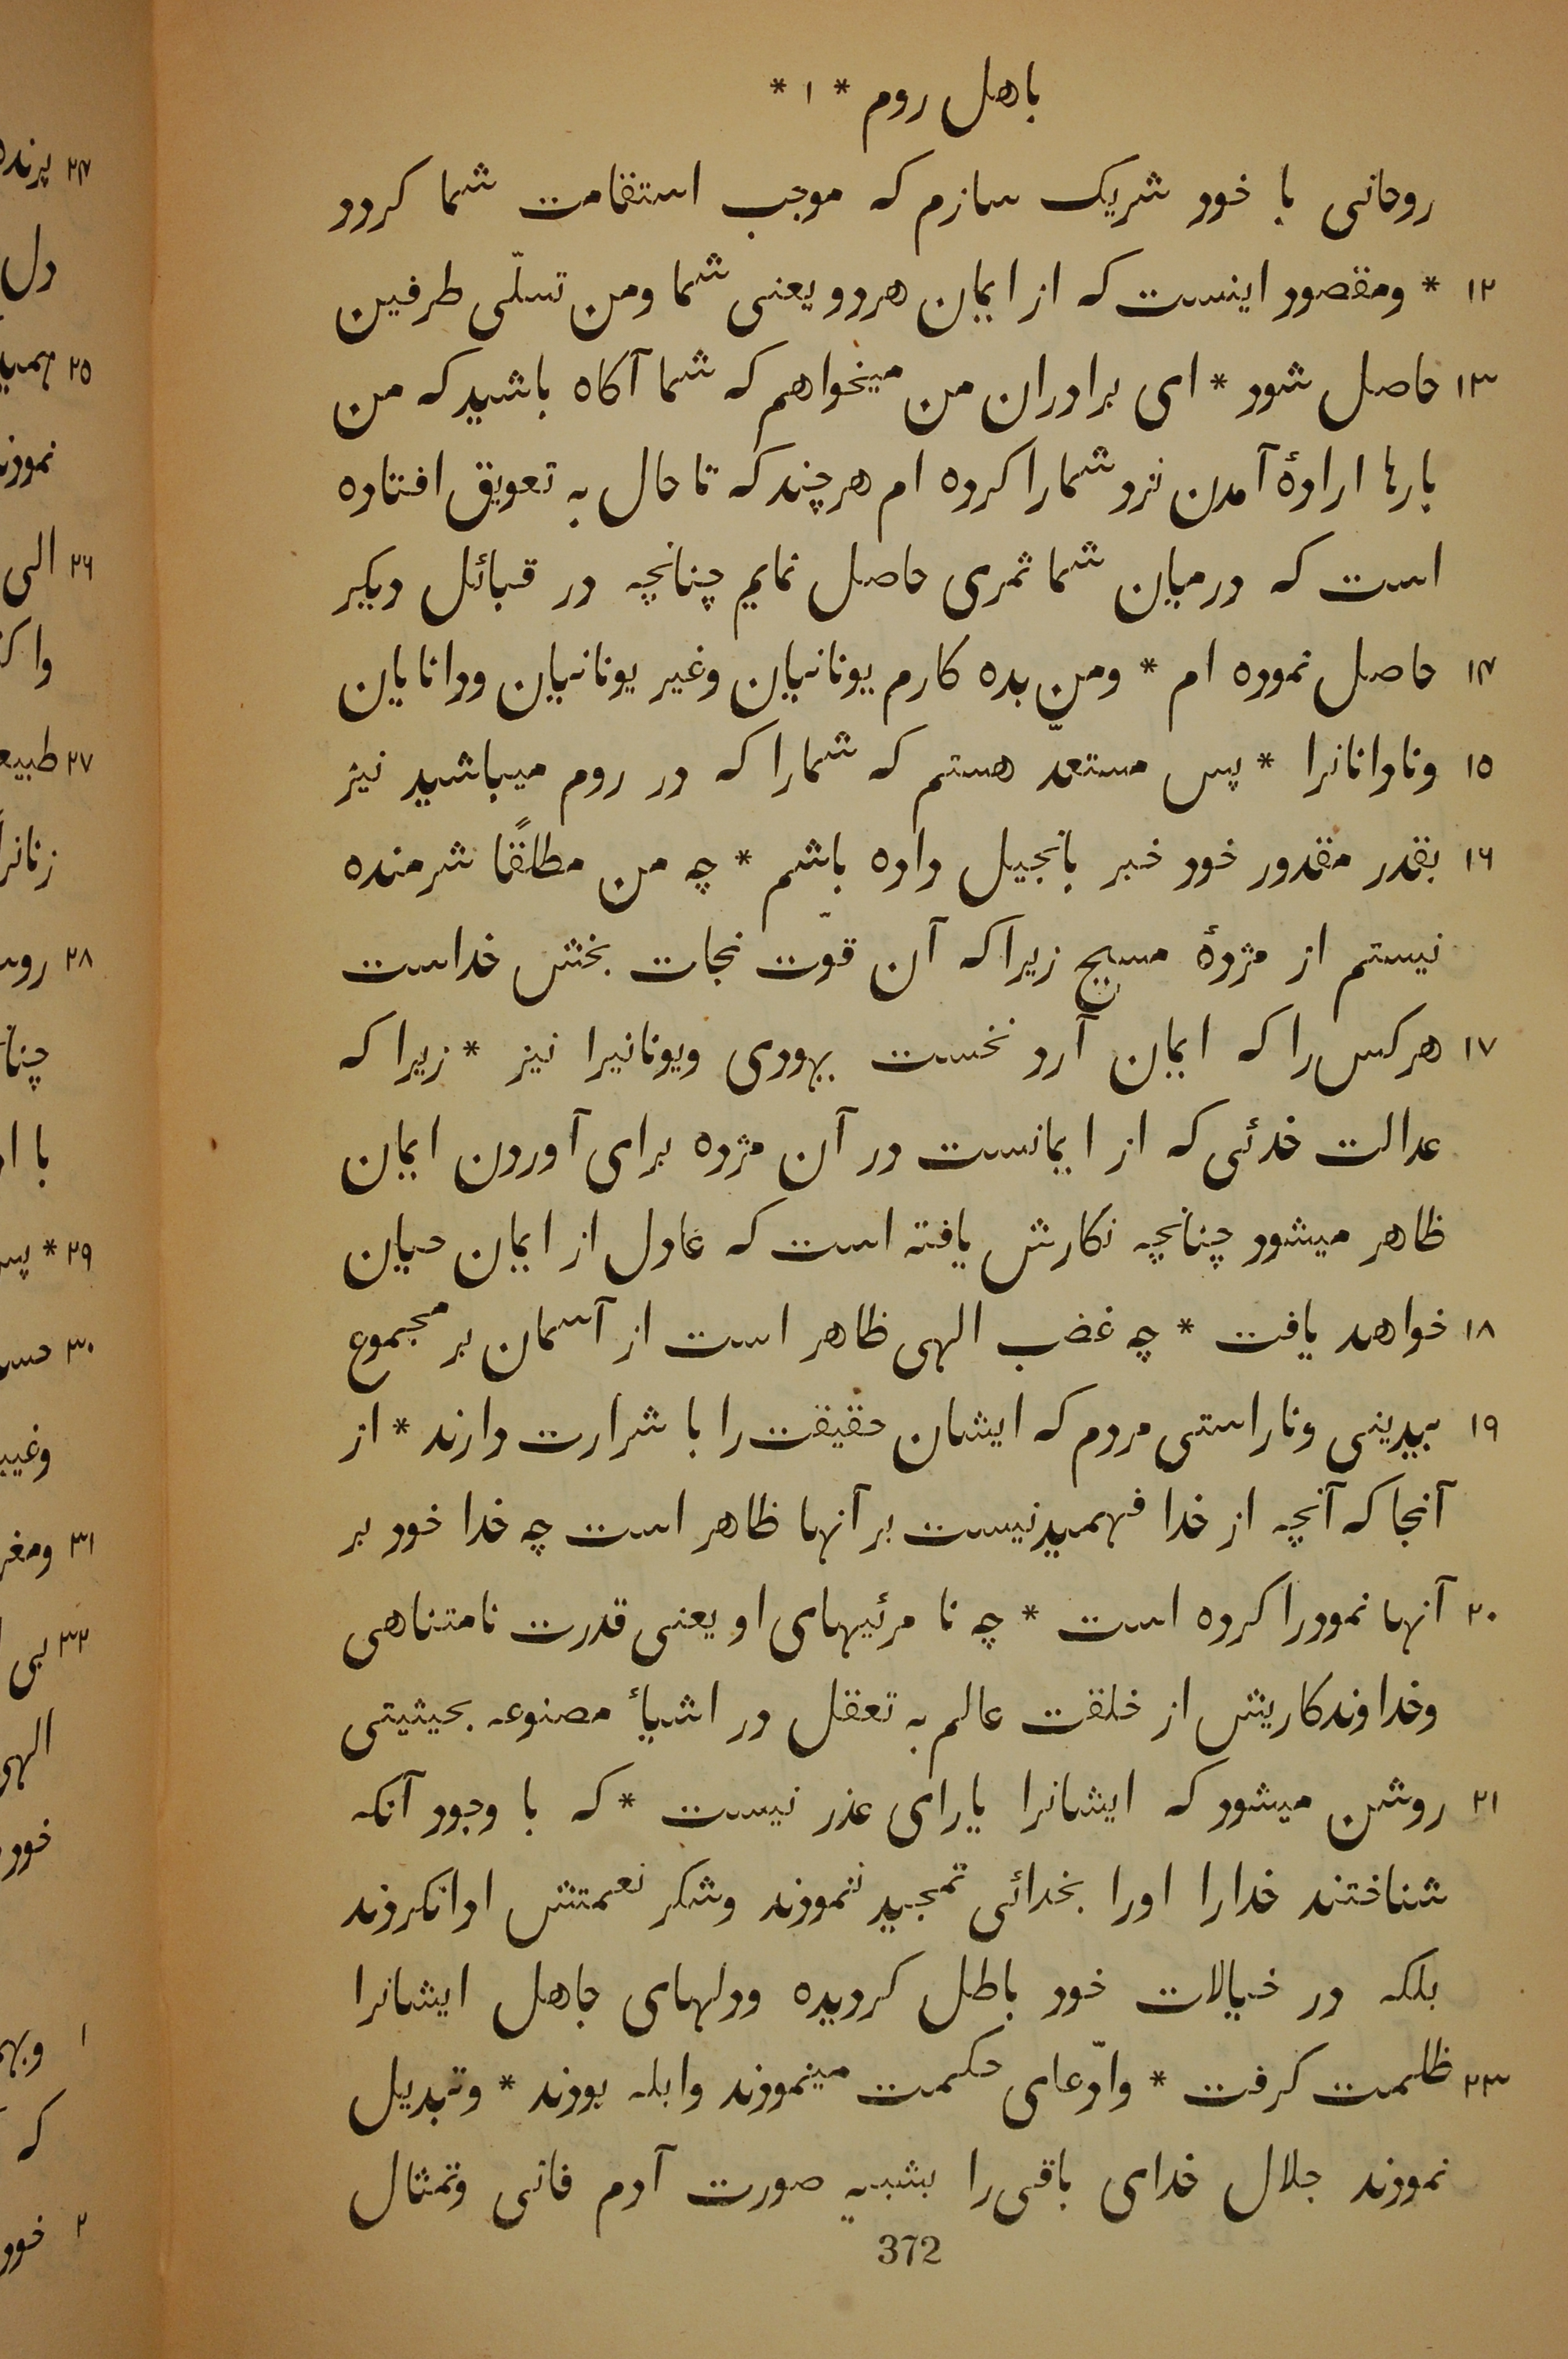 باهل روم * ۱ *
روحانی با خود شریک سازم که موجب استقامت شما کردد
۱۲ * ومقصود اینست که از ایمان هردو یعنی شما ومن تسلّی طرفین
۱۳ حاصل شود * ای برادران من میخواهم که شما آکاه باشید که من
بارها ارادهٔ آمدن نزد شمارا کرده ام هرچند که تا حال به تعویق افتاده
است که درمیان شما ثمری حاصل نمایم چنانچه در قبائل دیکر
۱۴ حاصل نموده ام * ومن بده کارم یونانیان وغیر یونانیان ودانایان
۱۵ ونادانانرا * پس مستعدّ هستم که شمارا که در روم میباشید نیز
۱۶ بقدر مقدور خود خبر بانجیل داده باشم * چه من مطلقًا شرمنده
نیستم از مژدهٔ مسیح زیرا که آن قوّت نجات بخش خداست
۱۷ هرکس را که ایمان آرد نخست یهودی ویونانیرا نیز * زیرا که
عدالت خدئی که از ایمانست در آن مژده برای آوردن ایمان
ظاهر میشود چنانچه نکارش یافته است که عادل از ایمان حیان
۱۸ خواهد یافت * چه غضب الهی ظاهر است از آسمان بر مجموع
۱۹ بیدینی وناراستی مردم که ایشان حقیقت را با شرارت دارند * از
آنجا که آنچه از خدا فهمیدنیست بر آنها ظاهر است چه خدا خود بر
۲۰ آنها نمودرا کرده است * چه نا مرئیهای او یعنی قدرت نامتناهی
وخداوندکاریش از خلقت عالم به تعقل در اشیأ مصنوعه بحیثیتی
۲۱ روشن میشود که ایشانرا یارای عذر نیست * که با وجود آنکه
شناختند خدارا اورا بخدائی تمجید ننمودند وشکر نعمتش ادانکردند
بلکه در خیالات خود باطل کردیده ودلهای جاهل ایشانرا
۲۲۳ ظلمت کرفت * وادّعای حکمت مینمودند وابله بودند * وتبدیل
نمودند جلال خدای باقی را بشبیه صورت آدم فانی وتمثال
372
۲۴ پرنده
دل
۲۵
۲۶ الی
۲۷ طبیع
۲۸
با
۲۹ *
۳۰
۳۱
۳۲ بی
خود
۱
که
۲ خود